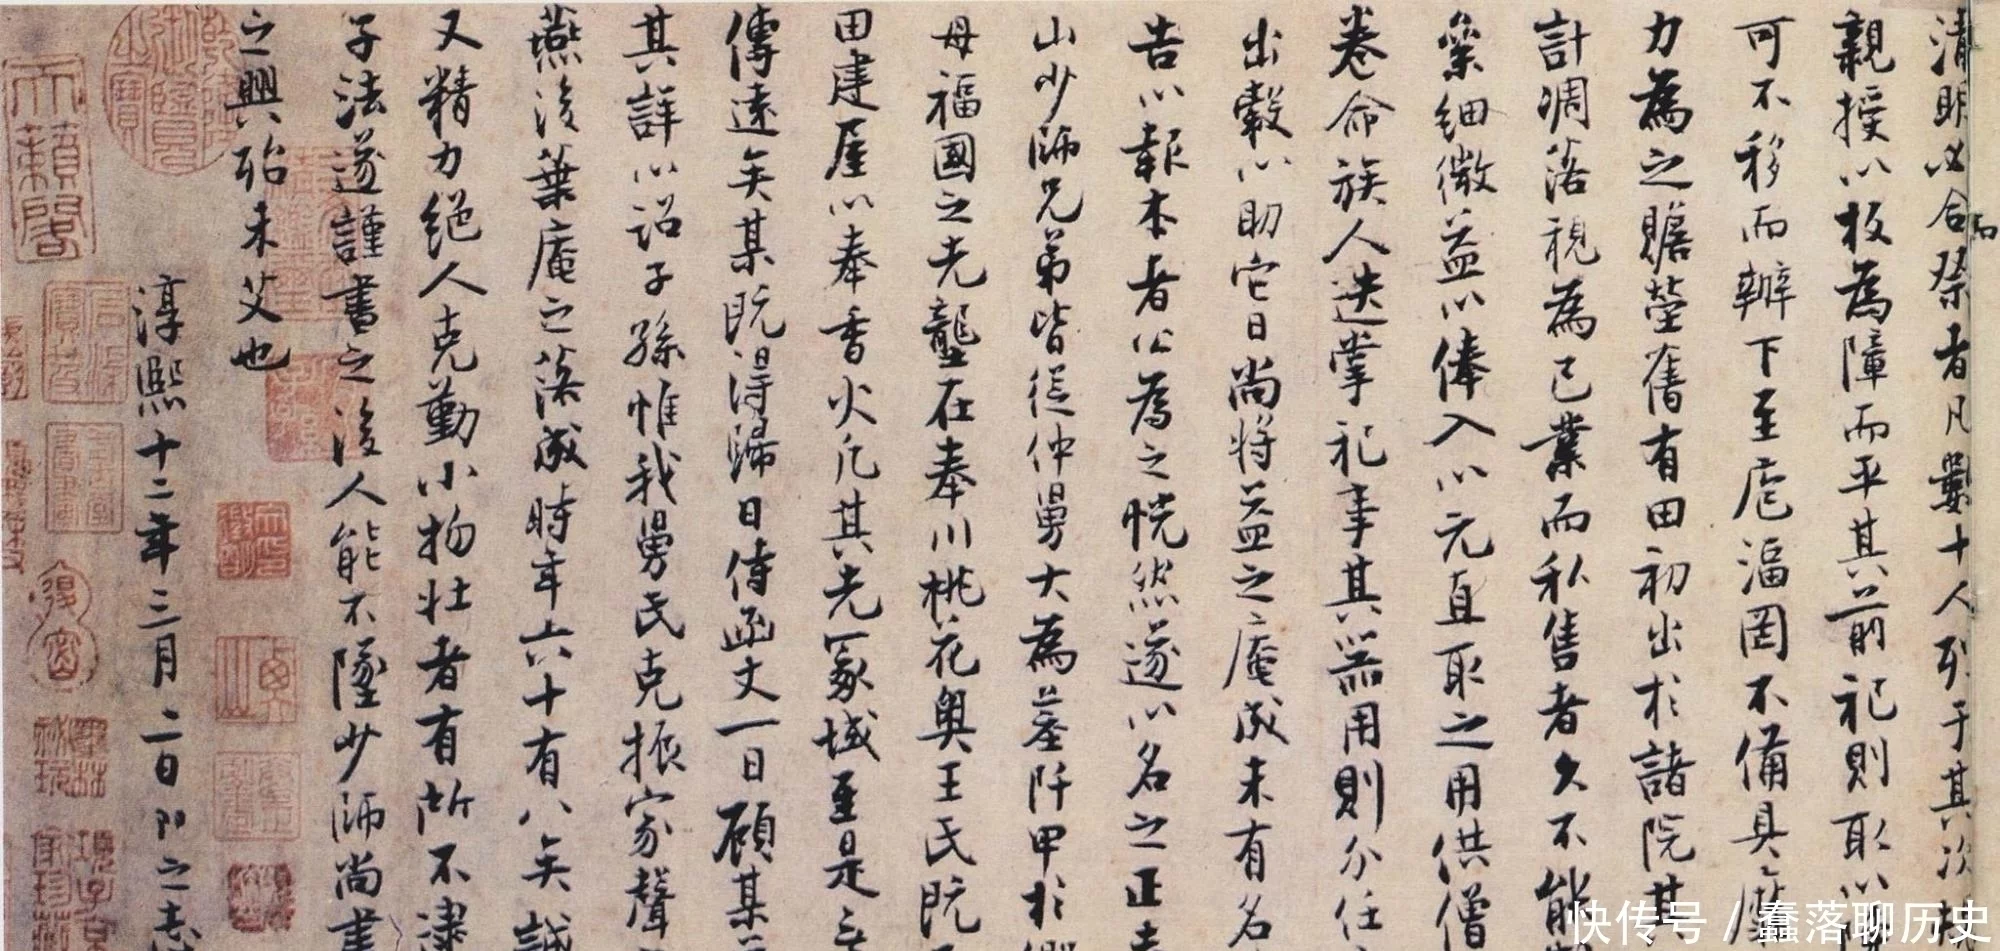 清明必合祭者凡數十人列于其次
親授以板為障而平其前祀則取以
可不移而辦下至庖湢罔不備具
力為之贍塋舊有田初出於諸院其
計凋落視為已業而私售者久不能
業細微益以俸入以元直取之用供僧
卷命族人迭掌祀事其器用則分任
出穀以助它日尚將益之庵成未有名
告以報本者公為之恍然遂以名之正
山少師兄弟皆從仲舅大為墓阡甲於
母福國之先壟在奉川桃花奧王氏既
田建屋以奉香火凡其先冢域至是
傳遠矣某既得歸日侍函丈一日顧某
其詳以詔子孫惟我舅氏克振家聲
燕後葉庵之落成時年六十有八矣誠
又精力絕人克勤小物壯者有所不逮
子法遂謹書之後人能不墜少師尚書
之興殆未艾也
淳熙十二年三月二日
天籟閣
快传号 / 蠢落聊历史